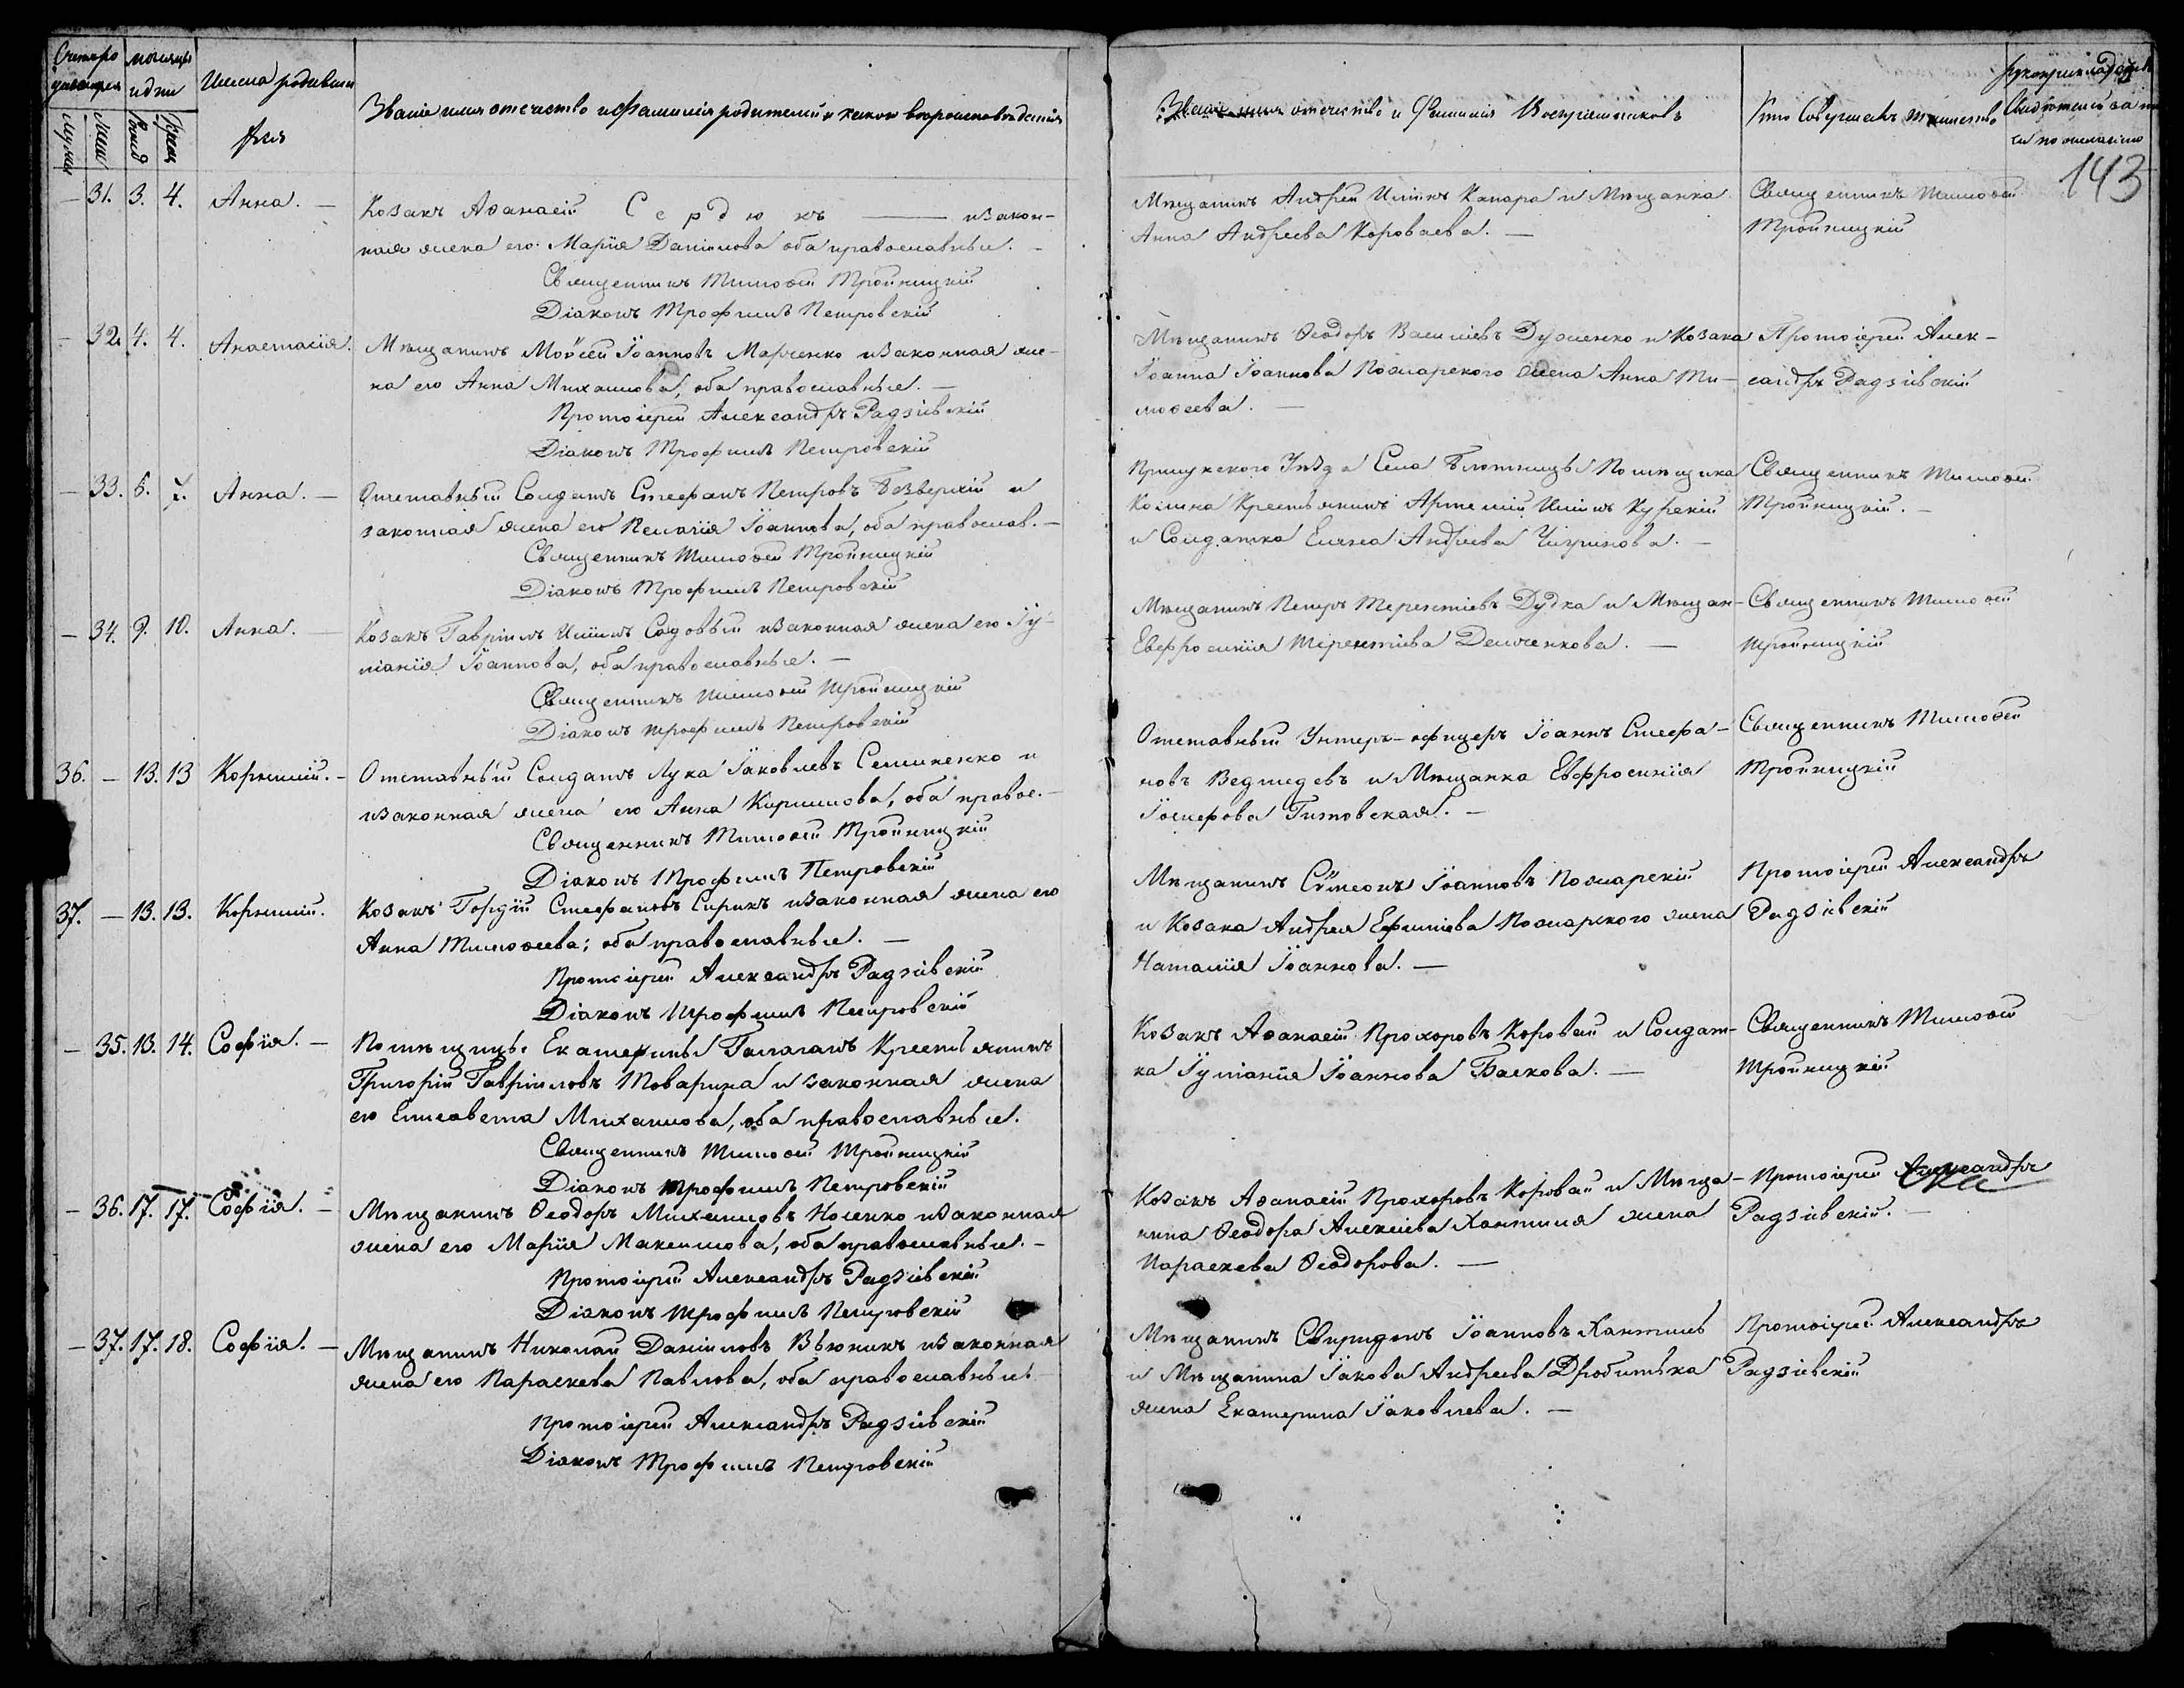 Счетъ родившихся
мѣсяцъ и дни
Имена родивших
ся
Званіе имя отечество и фамилія родителей и какого вѣроисповѣданія
Званіе имя отечество и фамилія Воспріемниковъ
Кто совершалъ таинство
муж
жен
рожд
крещ
143
— 31. 3. 4. Анна. —
Козакъ Аѳанасій Сердюкъ —— и закон-
ная жена его Марія Даніилова оба православные. —
Священникъ Тимоѳей Тройницкій
Діаконъ Трофимъ Петровскій
Мѣщанинъ Андрей Ильинъ Капара и Мѣщанка
Анна Андреева Короваева. —
Священникъ Тимоѳей
Тройницкій
— 32. 4. 4. Анастасія.
Мѣщанинъ Моѵсей Іоанновъ Марченко и законная же-
на его Анна Михаилова, оба православные. —
Протоіерей Александръ Радзіевскій
Діаконъ Трофимъ Петровскій
Мѣщанинъ Ѳеодоръ Васильевъ Дуженко и Козака
Іоанна Іоаннова Пожарского жена Анна Ти-
моѳеева. —
Протоіерей Алек-
сандръ Радзіевскій
— 33. 5. 7. Анна. —
Отставный Солдатъ Стефанъ Петровъ Безверхій и
законная жена его Пелагія Іоаннова, оба православ. —
Священникъ Тимоѳей Тройницкій
Діаконъ Трофимъ Петровскій
Прилукского Уѣзда Села Блотницы Помѣщика
Крестьянинъ Артемій Ильинъ Курскій
и Солдатка Елена Андреева Чигринова. —
Священникъ Тимоѳей
Тройницкій. —
— 34. 9. 10. Анна. —
Козакъ Гавріилъ Ильинъ Садовый и законная жена его Іу-
ліанія Іоаннова, оба православные. —
Священникъ Тимоѳей Тройницкій
Діаконъ Трофимъ Петровскій
Мѣщанинъ Петръ Терентіевъ Дудка и Мѣщан-
Евфросинія Терентіева Демченкова. —
Священникъ Тимоѳей
Тройницкій
36. — 13. 13 Корнилій. —
Отставный Солдатъ Лука Іаковлевъ Семиненко и
и законная жена его Анна Кирилова, оба правос. —
Священникъ Тимоѳей Тройницкій
Діаконъ Трофимъ Петровскій
Отставный Унтеръ-офицеръ Іоаннъ Стефа-
новъ Ведмедевъ и Мѣщанка Евфросинія
Іосифова Гитовская. —
Священникъ Тимоѳей
Тройницкій
37. — 13. 13. Корнилій.
Козакъ Гордій Стефановъ Сирикъ и законная жена его
Анна Тимоѳеева; оба православные. —
Протоіерей Александръ Радзіевскій
Діаконъ Трофимъ Петровскій
Мѣщанинъ Сѵмеонъ Іоанновъ Пожарскій
и Козака Андрея Ефимова Пожарского жена
Наталія Іоаннова. —
Протоіерей Александръ
Радзіевскій
— 35. 13. 14. Софія. —
Помѣщицы Екатерины Галаганъ Крестьянинъ
Григорій Гавріиловъ Товарина и законная жена
его Елисавета Михаилова, оба православные.
Священникъ Тимоѳей Тройницкій
Діаконъ Трофимъ Петровскій
Козакъ Аѳанасій Прохоровъ Коровай и Солдат-
ка Іуліанія Іоаннова Баскова. —
Священникъ Тимоѳей
Тройницкій
— 36. 17. 17. Софія. —
Мѣщанинъ Ѳеодоръ Михаиловъ Носенко и законная
жена его Марія Максимова, оба православные. —
Протоіерей Александръ Радзіевскій
Діаконъ Трофимъ Петровскій
Козакъ Аѳанасій Прохоровъ Коровай и Мѣща-
нина Ѳеодора Алексіева Хантиля жена
Параскева Ѳеодорова. —
Протоіерей Александръ
Радзіевскій. —
— 37. 17. 18. Софія. —
Мѣщанинъ Николай Даніиловъ Вьюникъ и законная
жена его Параскева Павлова, оба православные
Протоіерей Александръ Радзіевскій
Діаконъ Трофимъ Петровскій
Мѣщанинъ Свиридонъ Іоанновъ Хантиль
и Мѣщанина Іакова Андреева Дробитька
жена Екатерина Іаковлева. —
Протоіерей Александръ
Радзіевскій